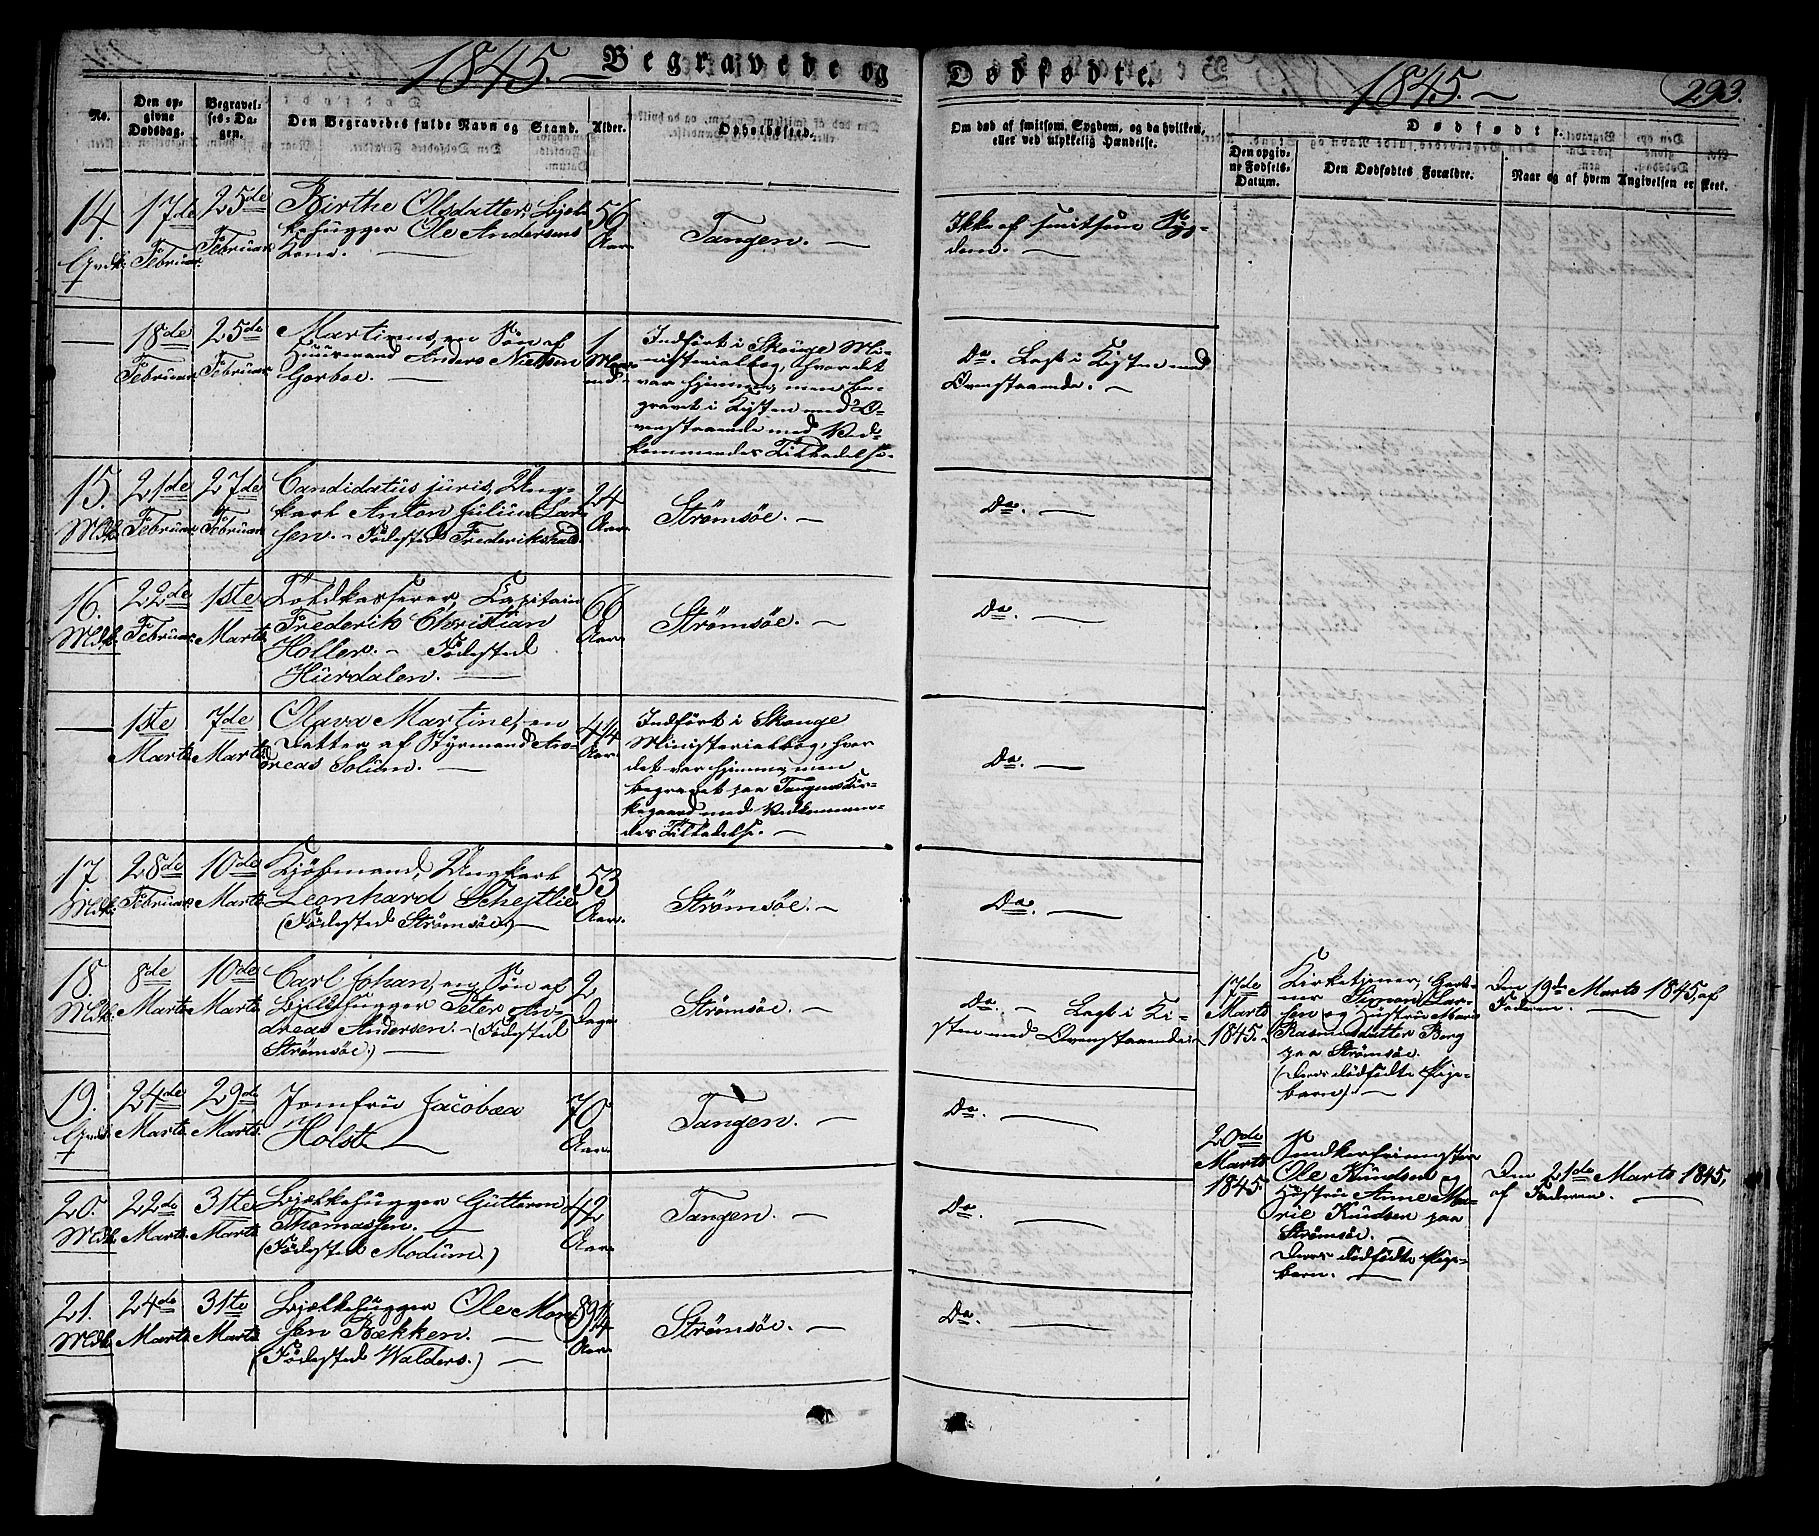 1845. — Begravede og Dødfødte. 1845. — 293.
No. | Den opgivne Dødsdag. | Begravelses-Dagen. | Den Begravedes fulde Navn og Stand. | Alder. | Opholdssted. | Om død af smitsom Sygdom, og da hvilken, eller ved ulykkelig Hændelse.
Dødfødte.
Den opgivne Fødsels-Datum. | Den Dødfødtes Forældre. | Naar og af hvem Angivelsen er skeet.
14. | 17de Februar. | 25de Februar. | Birthe Olsdatter, Bjelkehugger Ole Andersens Kone. — | 56 Aar. | Tangen. — | Ikke af smitsom Sygdom. —
18de Februar. | 25de Februar. | Martinus, en Søn af Huusmand Anders Nielsen Gorboe. — | 1 Maaned. | Indført i Skouge Ministerialbog, hvor det var hjemme, men begravet i Kisten med Ovenstaaende med Vedkommendes Tilladelse. | Do. Lagt i Kisten med Ovenstaaende. —
15. Mdk. | 21de Februar. | 27de Februar. | Candidatus juris, Ungkarl Anton Julius Larsen. – Fødested Frederikshald. | 24 Aar. | Strømsöe. — | Do. —
16. Mdk. | 22de Februar. | 1ste Marts. | Toldkasserer, Capitain Frederik Christian Holler. – Fødested Hurdalen. — | 66 Aar. | Strømsöe. — | Do. —
1ste Marts. | 7de Marts. | Olava Martine, en Datter af Styrmand Andreas Solum. — | 44 Aar. | Indført i Skouge Ministerialbog, hvor det var hjemme, men begravet paa Tangens Kirkegaard med Vedkommendes Tilladelse. — | Do. —
17. Mdk. | 28de Februar. | 10de Marts. | Kjøbmand, Ungkarl Leonhard Schejtlie (Fødested Strømsöe) — | 53 Aar. | Strømsöe. — | Do. —
18. Mdk. | 8de Marts. | 10de Marts. | Carl Johan, en Søn af Bjelkehugger Peter Andreas Andersen. – (Fødested Strømsöe.) — | 2 Dage. | Strømsöe. — | Do. — Lagt i Kisten med Ovenstaaende.
17de Marts 1845. – | Kirketjener, Gartner Simon Larsen og Hustru Maren Rasmusdatter Berg paa Strømsöe. (Deres dödfödte Pigebarn). — | Den 19de Marts 1845, af Faderen. —
19. | 24de Marts. | 29de Marts. | Jomfru Jacobæa Holst — | 70 Aar. | Tangen. — | Do. —
20de Marts 1845. | Smedkersvengster Ole Knudsen og Hustru Anne Marie Knudsen paa Strømsöe. – Deres dödfödte Pigebarn. — | Den 21de Marts 1845, af Faderen. —
20. Mdk. | 22de Marts. | 31te Marts. | Bjelkehugger Guttorm Thomassen. — (Fødested Modum.) | 42 Aar. | Tangen. — | Do. —
21. Mdk. | 24de Marts. | 31te Marts. | Bjelkehugger Ole Monsen Bækken. — (Fødested Walders.) — | 89¼ Aar. | Strømsöe. — | Do. —